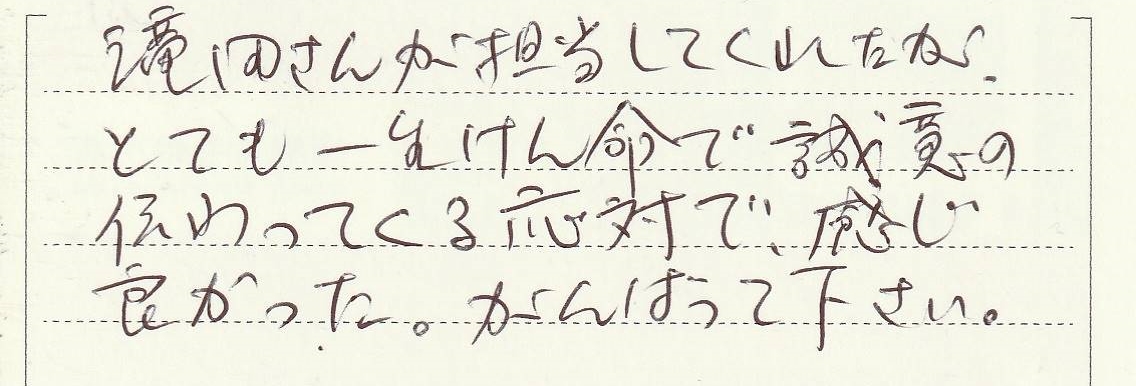 滝田さんが担当してくれたが、
とても一生けん命で誠意の
伝わってくる応対で、感じ
良かった。がんばって下さい。